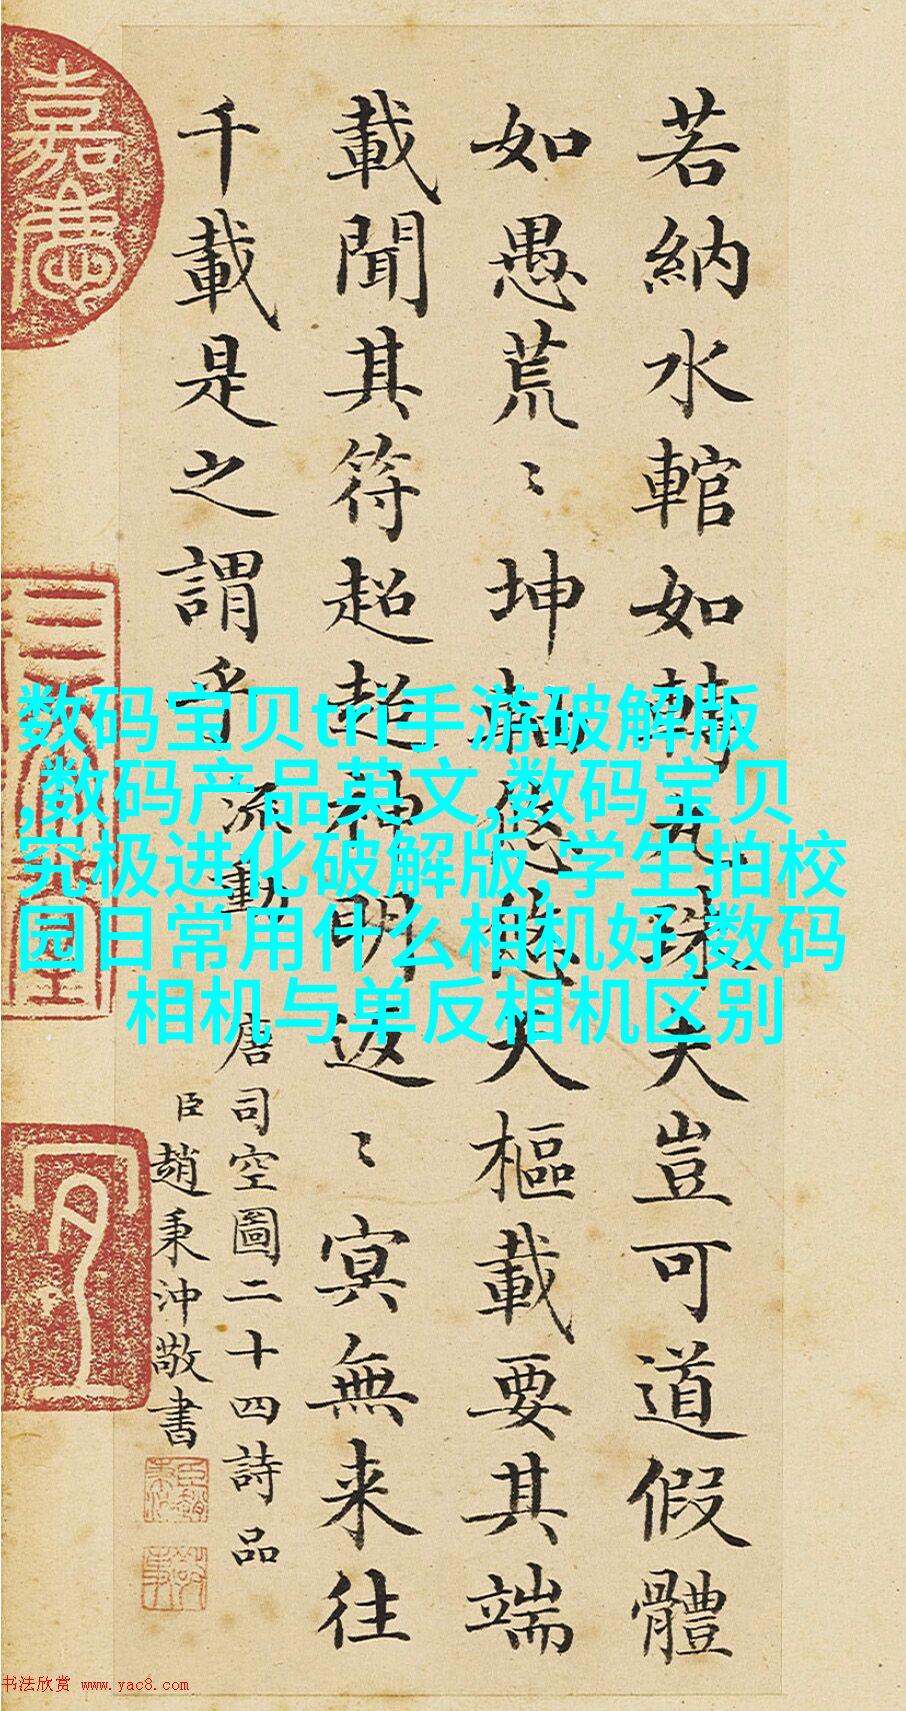 若納水輨如轉丸珠夫豈可道假體
如愚荒〻坤軸悠悠天樞載要其端
載聞其符超超神明返〻冥無来往
千載是之謂乎 流動
唐司空圖二十四詩品
臣趙秉沖敬書
嘉慶
数码宝贝tri手游破解版
,数码产品英文,数码宝贝
究极进化破解版,学生拍校
园日常用什么相机好,数码
相机与单反相机区别
书法欣赏 www.yac8.com